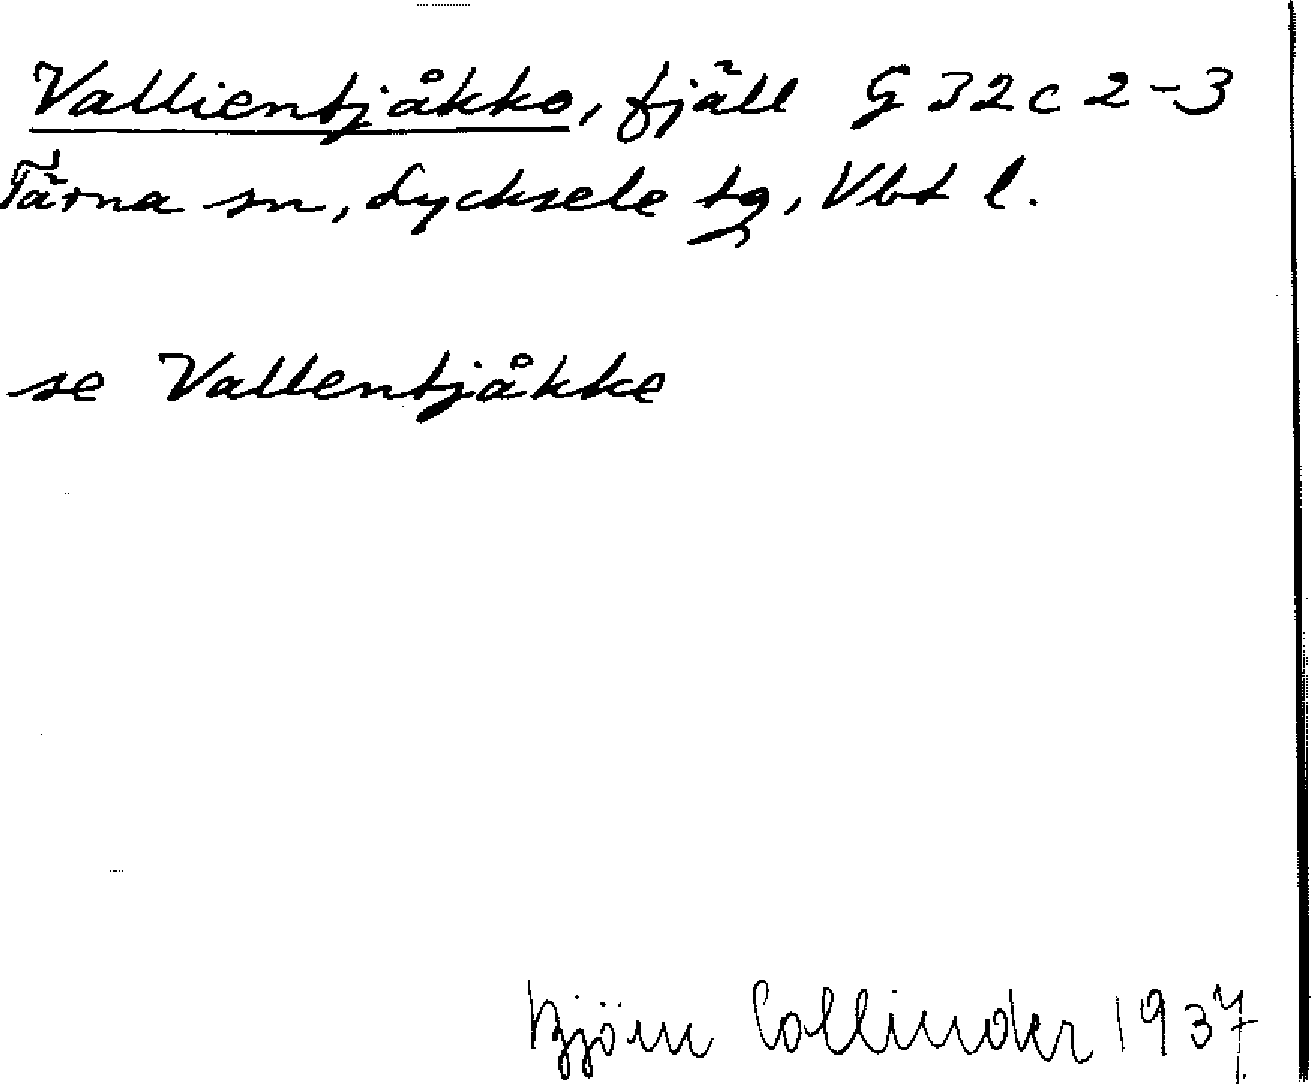 Vallientjåkko, fjäll G 32 c 2-3
Tärna sn, Lycksele tg, Vbt l.
se Vallentjåkke
Björn Collinder 1937